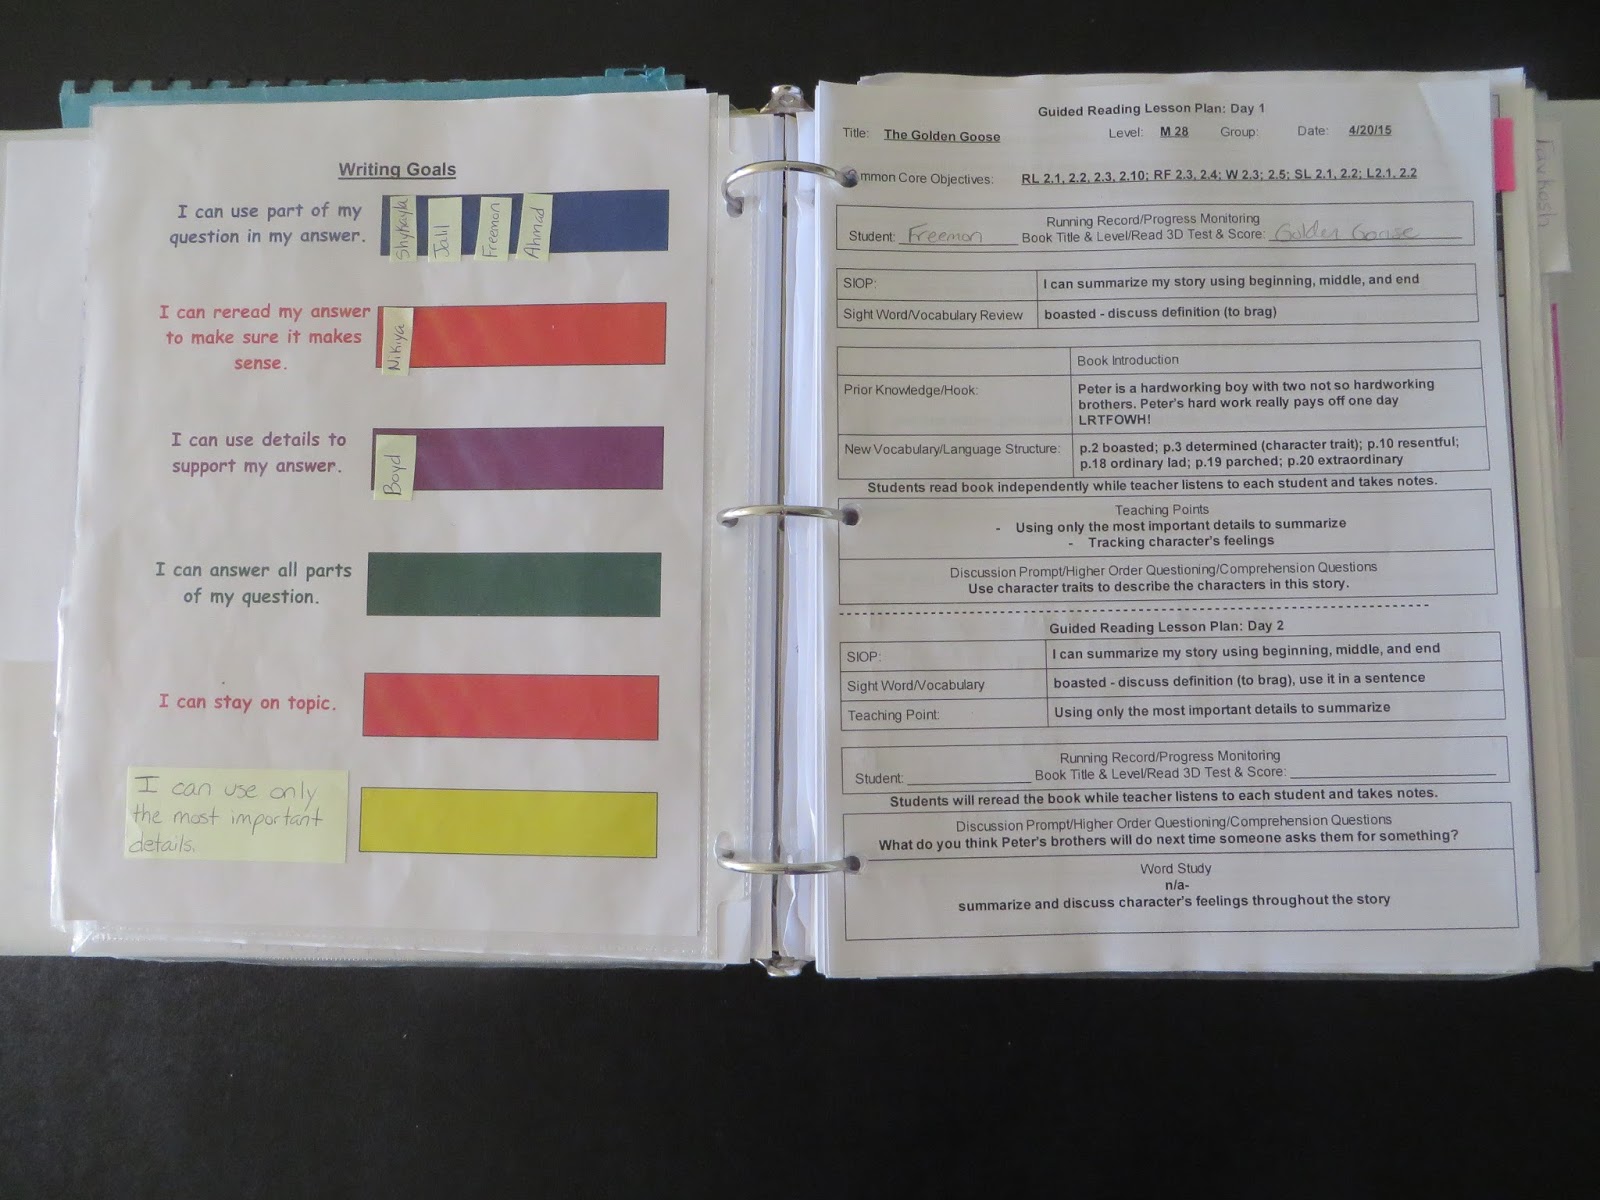 Writing Goals
I can use part of my
question in my answer.
Shykayla
Jalil
Freemon
Ahmad
I can reread my answer
to make sure it makes
sense.
Nikiya
I can use details to
support my answer.
Boyd
I can answer all parts
of my question.
I can stay on topic.
I can use only
the most important
details.
Guided Reading Lesson Plan: Day 1
Title: The Golden Goose Level: M 28 Group: Date: 4/20/15
mmon Core Objectives: RL 2.1, 2.2, 2.3, 2.10; RF 2.3, 2.4; W 2.3; 2.5; SL 2.1, 2.2; L2.1, 2.2
Running Record/Progress Monitoring
Student: Freemon Book Title & Level/Read 3D Test & Score: Golden Goose
SIOP: I can summarize my story using beginning, middle, and end
Sight Word/Vocabulary Review boasted - discuss definition (to brag)
Book Introduction
Prior Knowledge/Hook: Peter is a hardworking boy with two not so hardworking
brothers. Peter's hard work really pays off one day
LRTFOWH!
New Vocabulary/Language Structure: p.2 boasted; p.3 determined (character trait); p.10 resentful;
p.18 ordinary lad; p.19 parched; p.20 extraordinary
Students read book independently while teacher listens to each student and takes notes.
Teaching Points
- Using only the most important details to summarize
- Tracking character's feelings
Discussion Prompt/Higher Order Questioning/Comprehension Questions
Use character traits to describe the characters in this story.
Guided Reading Lesson Plan: Day 2
SIOP: I can summarize my story using beginning, middle, and end
Sight Word/Vocabulary boasted - discuss definition (to brag), use it in a sentence
Teaching Point: Using only the most important details to summarize
Running Record/Progress Monitoring
Student: Book Title & Level/Read 3D Test & Score:
Students will reread the book while teacher listens to each student and takes notes.
Discussion Prompt/Higher Order Questioning/Comprehension Questions
What do you think Peter's brothers will do next time someone asks them for something?
Word Study
n/a-
summarize and discuss character's feelings throughout the story